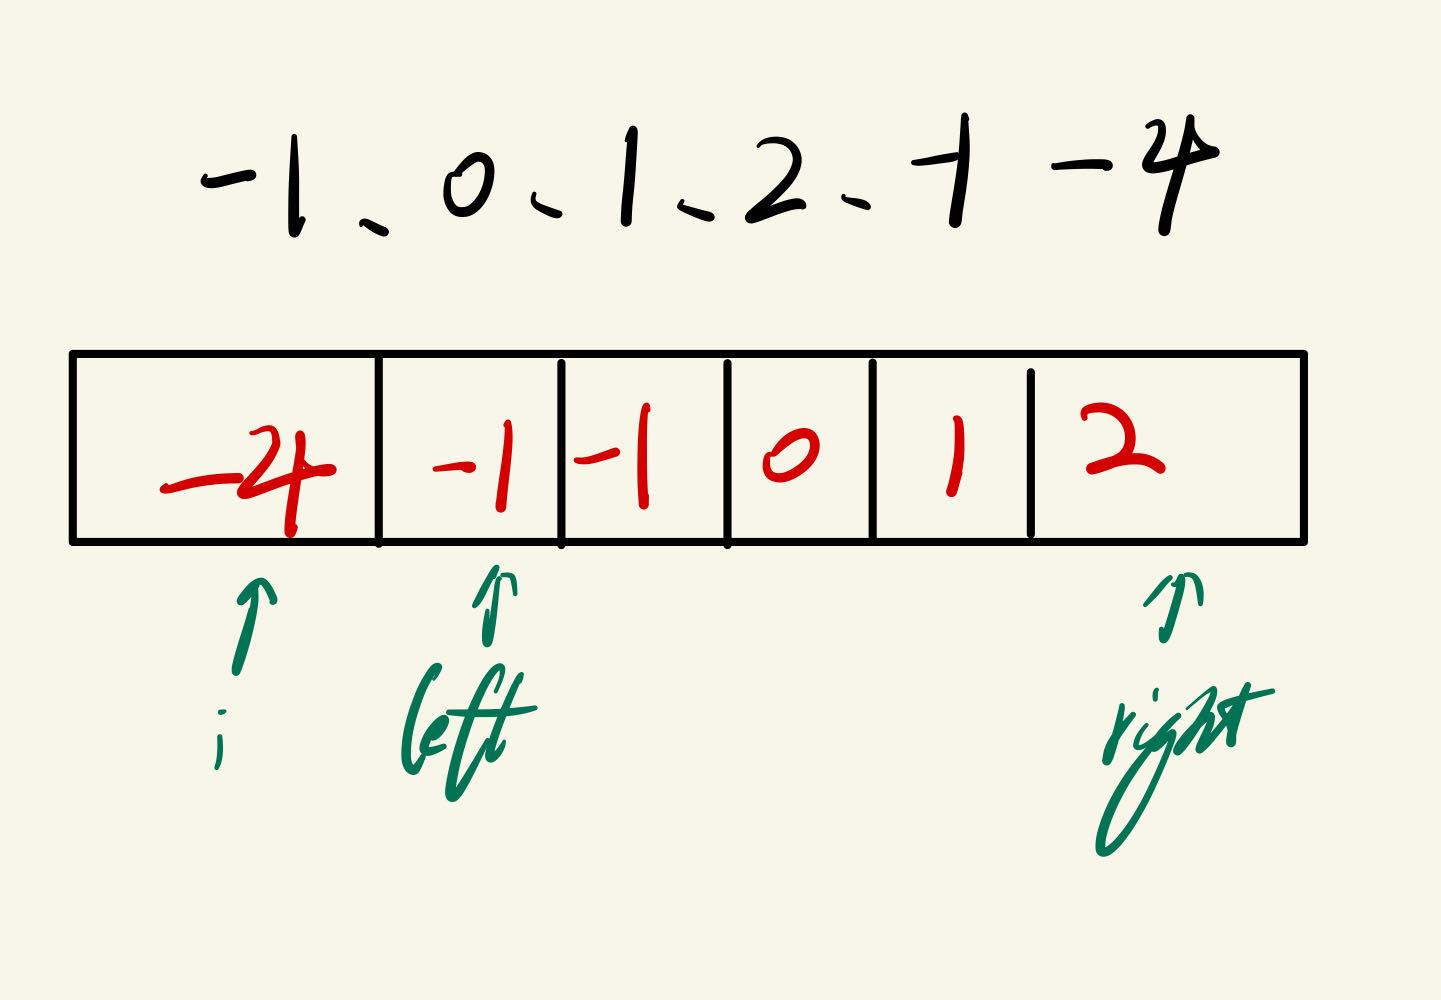 -1、0、1、2、-1 -4
-4 -1 -1 0 1 2
i left right